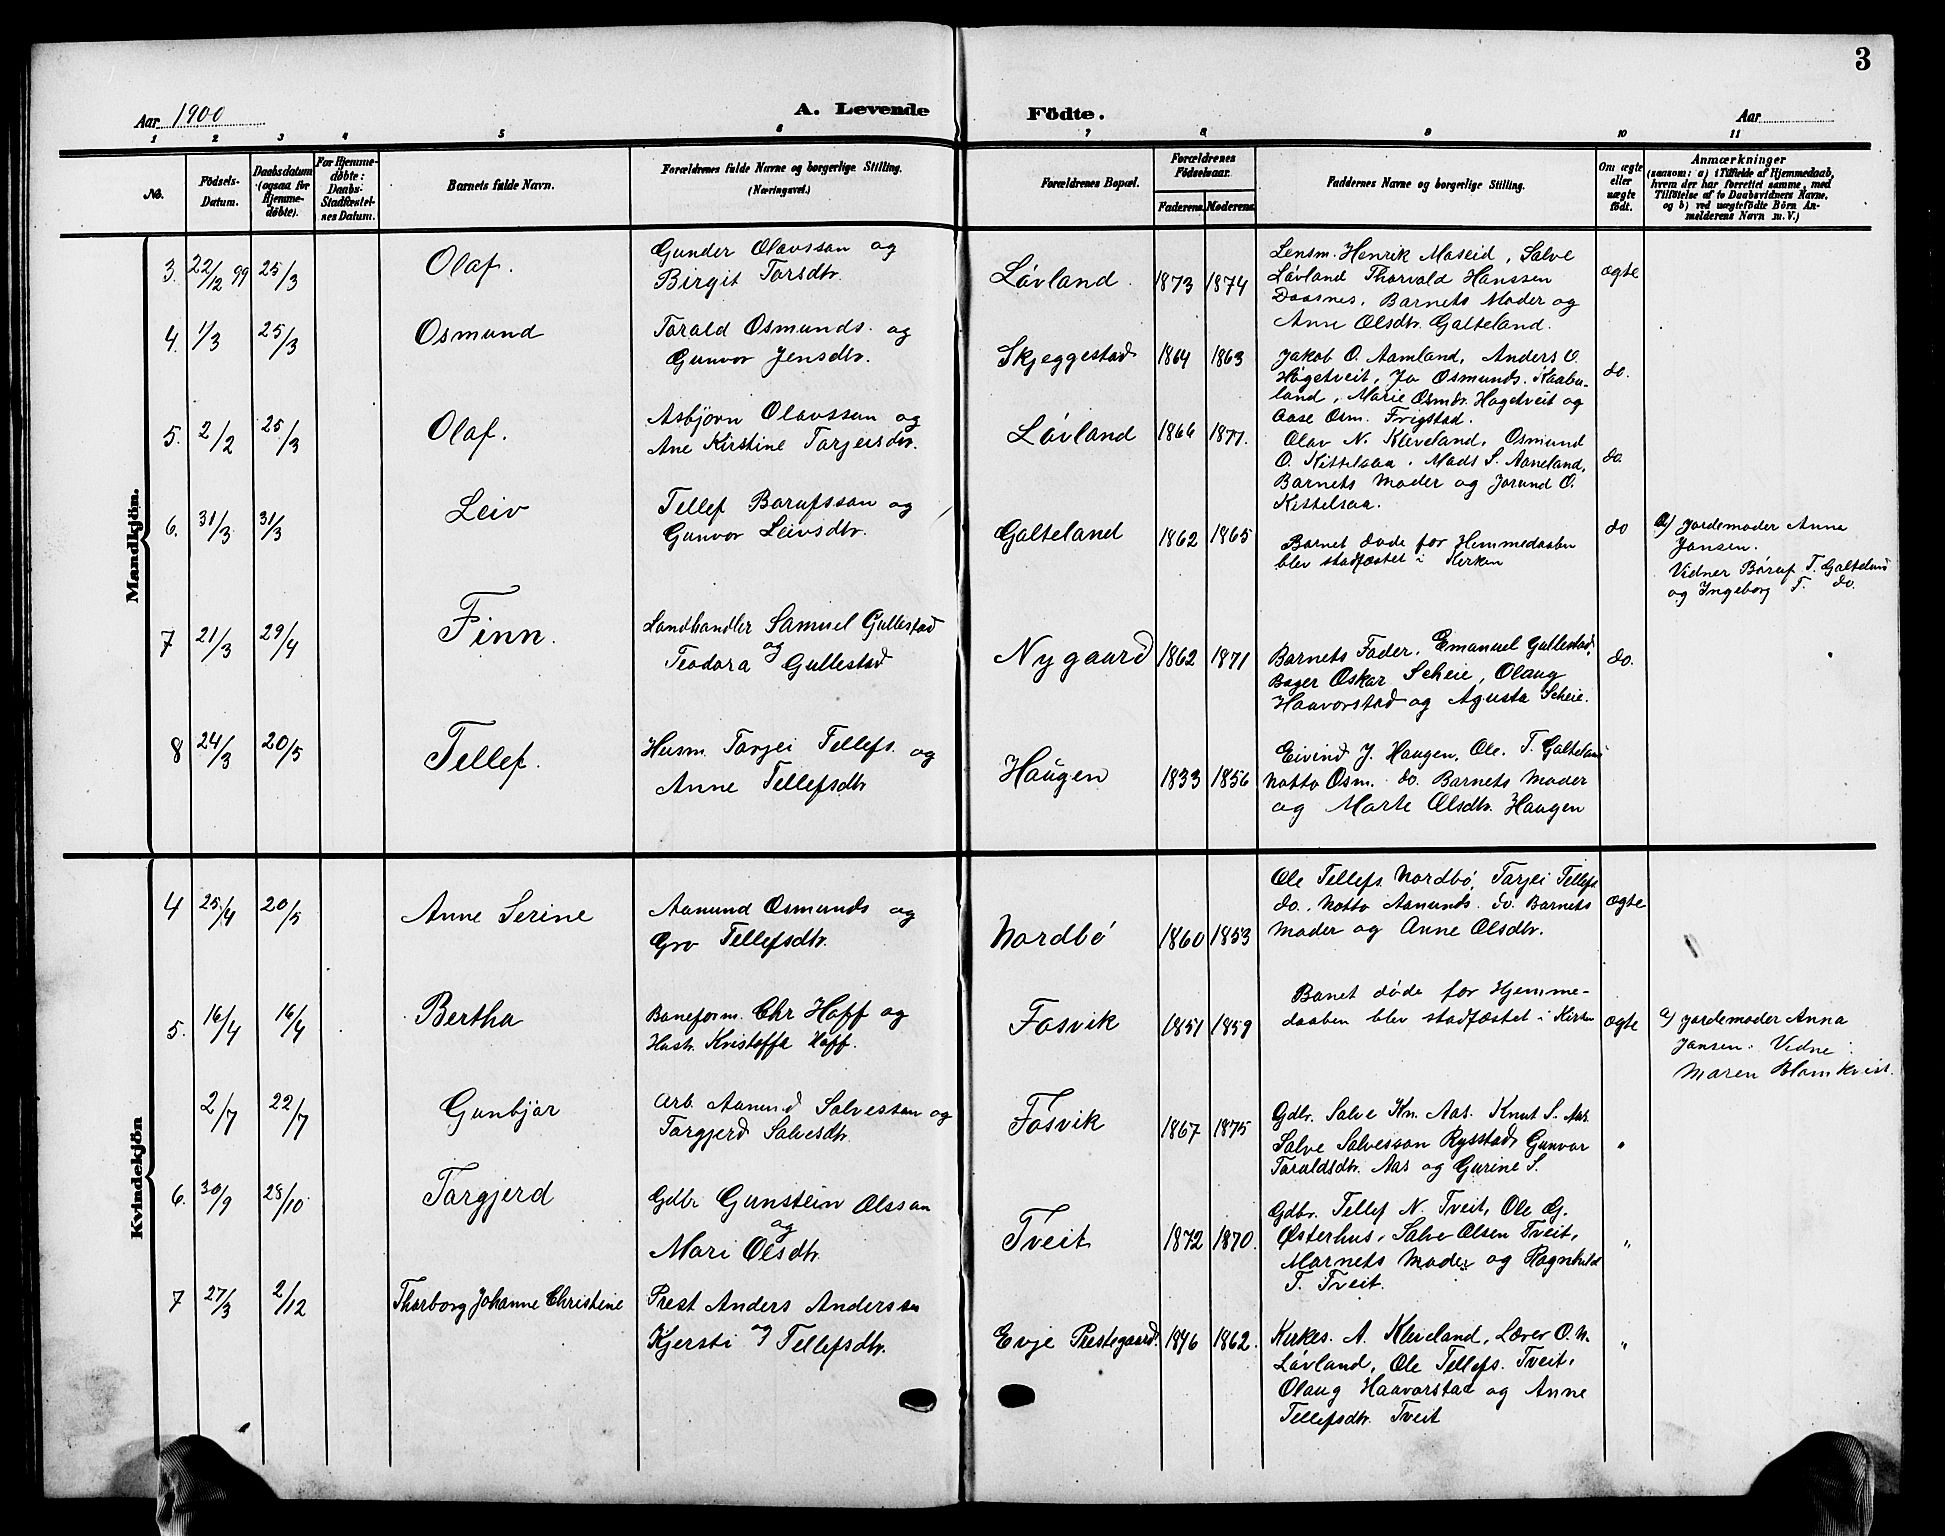 3
Aar 1900
A. Levende Födte.
Aar
1 2 3 4 5 6 7 8 9 10 11
No.
Födsels-Datum.
Daabsdatum (ogsaa for Hjemmedøbte).
For Hjemmedøbte: Daabs-Stadfæstelses Datum.
Barnets fulde Navn.
Forældrenes fulde Navne og borgerlige Stilling. (Næringsvei.)
Forældrenes Bopæl.
Forældrenes Födselsaar.
Faderens. Moderens.
Faddernes Navne og borgerlige Stilling.
Om ægte eller uægte födt.
Anmærkninger
(saasom: a) i Tilfælde af Hjemmedaab, hvem der har forrettet samme, med Tilföielse af to Daabsvidners Navne, og b) ved uægtefödte Börn Anmelderens Navn m. V.)
Mandkjön.
3. 22/12 99 25/3 Olaf. Gunder Olavsson og
Birgit Torsdtr. Løvland. 1873 1874
Lensm. Henrik Maseid, Salve
Løvland Thorvald Hanssen
Daasnes, Barnets Moder og
Anne Olsdtr. Galteland.
ægte
4. 1/3 25/3 Osmund Torald Osmunds. og
Gunvor Jensdtr. Skjeggestad 1864 1863
Jakob O. Aamland, Anders O.
Høgetveit, Jo Osmunds. Kaabuland,
Marie Osmdr. Høgetveit og
Aase Osm. Frigstad.
do.
5. 2/2 25/3 Olaf. Asbjørn Olavsson og
Ane Kirstine Tarjersdtr. Løvland 1866 1871.
Olav N. Kleveland, Osmund
O. Kittelsaa, Mads S. Aaneland,
Barnets Moder og Jorund O.
Kittelsaa.
do.
6. 31/3. 31/3 Leiv Tellef Børufsson og
Gunvor Leivsdtr. Galteland 1862 1865
Barnet døde før Hemmedaaben
blev stadfæstet i Kirken
do
a) Jordemoder Anna
Jansen.
Vidner Børuf T. Galteland
og Ingeborg T. do.
7 21/3 29/4 Finn. Landhandler Samuel Gullestad
og
Teodora Gullestad Nygaard 1862 1871
Barnets Fader. Emanuel Gullestad,
Bager Oskar Scheie, Olaug
Haavorstad og Agusta Scheie.
do.
8 24/3 20/5 Tellef. Husm. Tarjei Tellefs. og
Anne Tellefsdtr Haugen 1833 1856
Eivind J. Haugen, Ole. T. Galteland
Notto Osm. do. Barnets Moder
og Marte Olsdtr. Haugen
Kvindekjön
4 25/4 20/5 Anne Serine Aanund Osmunds og
Gro Tellefsdtr. Nordbø 1860 1853
Ole Tellefs. Nordbø, Tarjei Tellefs
do. Notto Aanunds. do. Barnets
Moder og Anne Olsdtr.
ægte
5. 16/4 16/4 Bertha Baneform. Chr Hoff og
Hustr. Kristoffa Hoff. Fosvik 1851 1859
Banet døde før Hjemmedaaben
blev stadfæstet i Kirken
ægte
a) Jordemoder Anna
Jansen. Vidne:
Maren Blomkvist.
2/7 22/7 Gunbjør Arb. Aanund Salvesson og
Torgjerd Salvesdtr. Fosvik 1867 1875
Gdbr. Salve Kn. Aas. Knut S. Aas.
Salve Salvesson Rysstad, Gunvor
Toraldsdtr. Aas og Gurine S.
"
6. 30/9 28/10. Torgjerd Gdbr Gunstein Olsson
og
Mari Olsdtr Tveit 1872 1870.
Gdbr. Tellef N. Tveit, Ole G.
Østerhus, Salve Olsen Tveit,
Marnets Moder og Ragnhild
T. Tveit.
"
7 27/3 2/12 Thorborg Johanne Christine Prest Anders Anderssen
og
Kjersti Tellefsdtr. Evje Prestegaard. 1846 1862.
Kirkes. A. Kleveland, Lærer O. N.
Løvland, Ole Tellefs. Tveit,
Olaug Haavorstad og Anne
Tellefsdtr. Tveit
"